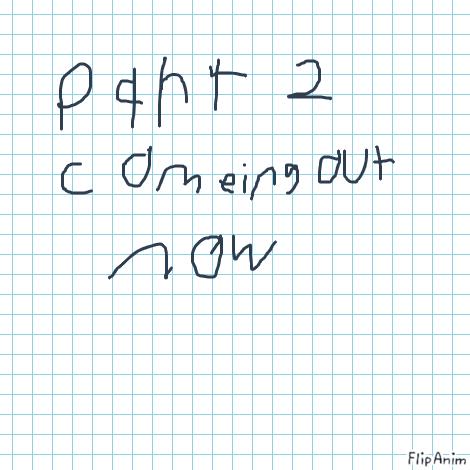 part 2
comeing out
now
FlipAnim